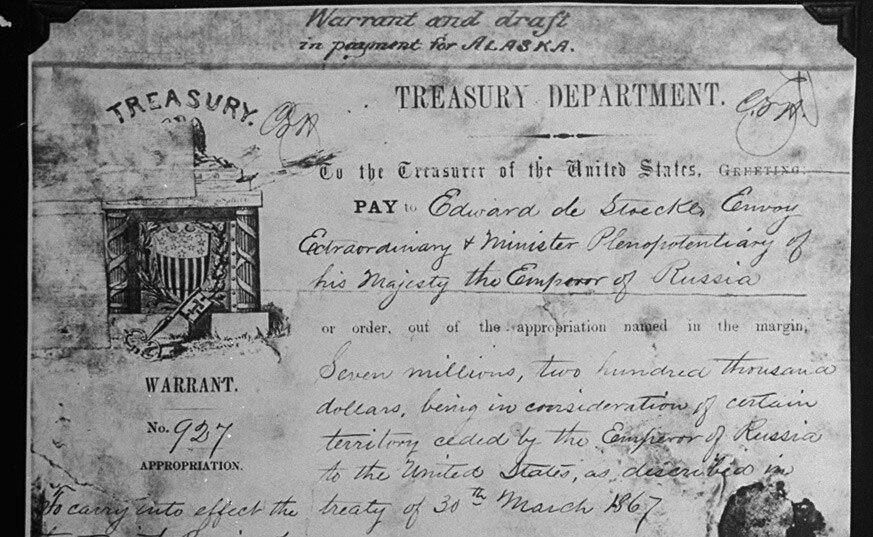 Warrant and draft
in payment for ALASKA.
TREASURY.
TREASURY DEPARTMENT.
To the Treasurer of the United States, GREETING:
PAY to Edward de Stoeckl, Envoy
Extraordinary & Minister Plenopotentiary of
his Majesty the Emperor of Russia
or order, out of the appropriation named in the margin,
Seven millions, two hundred thousand
dollars, being in consideration of certain
territory ceded by the Emperor of Russia
to the United States, as described in
treaty of 30th March 1867
WARRANT.
No. 927
APPROPRIATION.
To carry into effect the